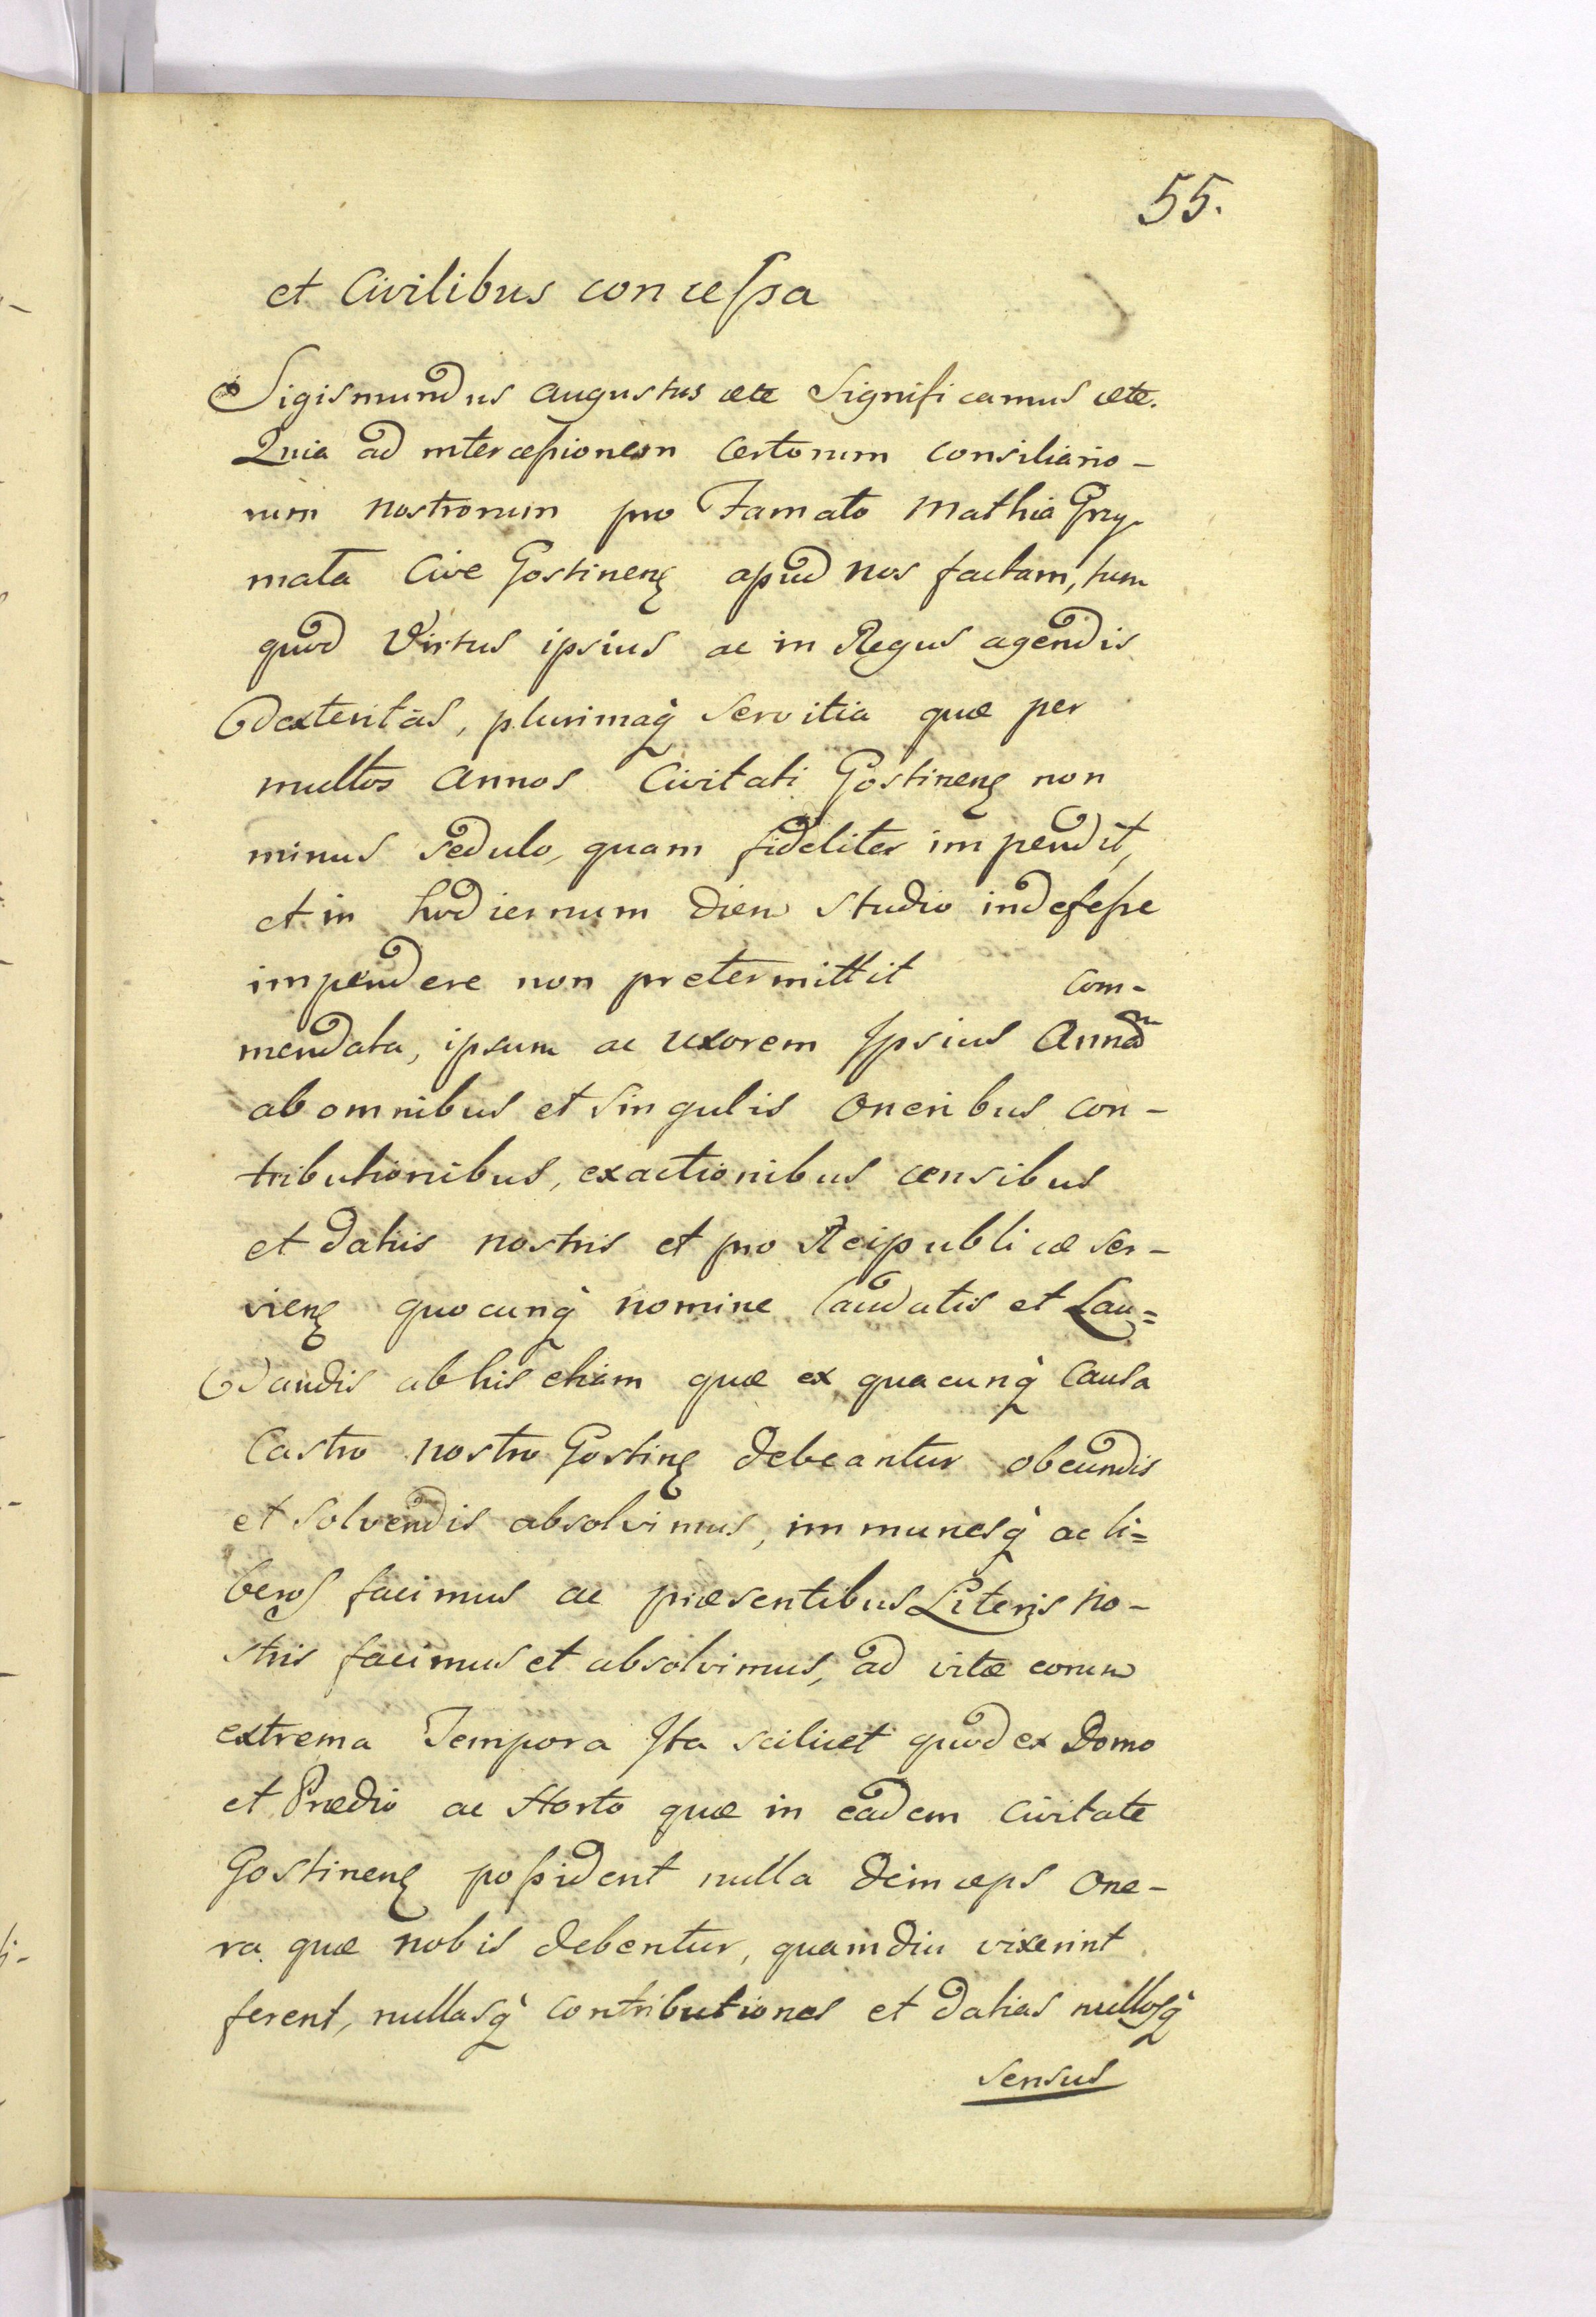 55.
et Civilibus concessa
Sigismundus Augustus cete Significamus cete.
Quia ad intercessionem certorum consiliario-
rum nostrorum pro Famato Mathia Grzy-
mata Cive Gostinenꝫ apud nos factam, tum
quod Virtus ipsius ac in Regus agendis
Dexteritas, plurimaq̀ Servitia quæ per
multos Annos Civitati Gostinenꝫ non
minus sedulo, quam fideliter impendit,
et in hodiernum diem studio indefesse
impendere non pretermittit com-
mendata, ipsum ac uxorem Ipsius Annam
ab omnibus et singulis oneribus con-
tributionibus, exactionibus censibus
et datiis nostris et pro Reipublicæ ser-
vienꝫ quocunq̀ nomine laudatis et Lau=
dandis ab his etiam quæ ex quacunq̀ Causa
Castro nostro Gostinꝫ debeantur obeundis
et solvendis absolvimus, immunesq̀ ac li=
beros facimus ac præsentibus Literis no-
stris facimus et absolvimus, ad vitæ eorum
extrema Tempora Ita scilicet quod ex Domo
et Prædio ac Horto quæ in eadem Civitate
Gostinenꝫ possident nulla deinceps one-
ra quæ nobis debentur, quamdiu vixerint
ferent, nullasq̀ contributiones et datias nullosq̀
sensus